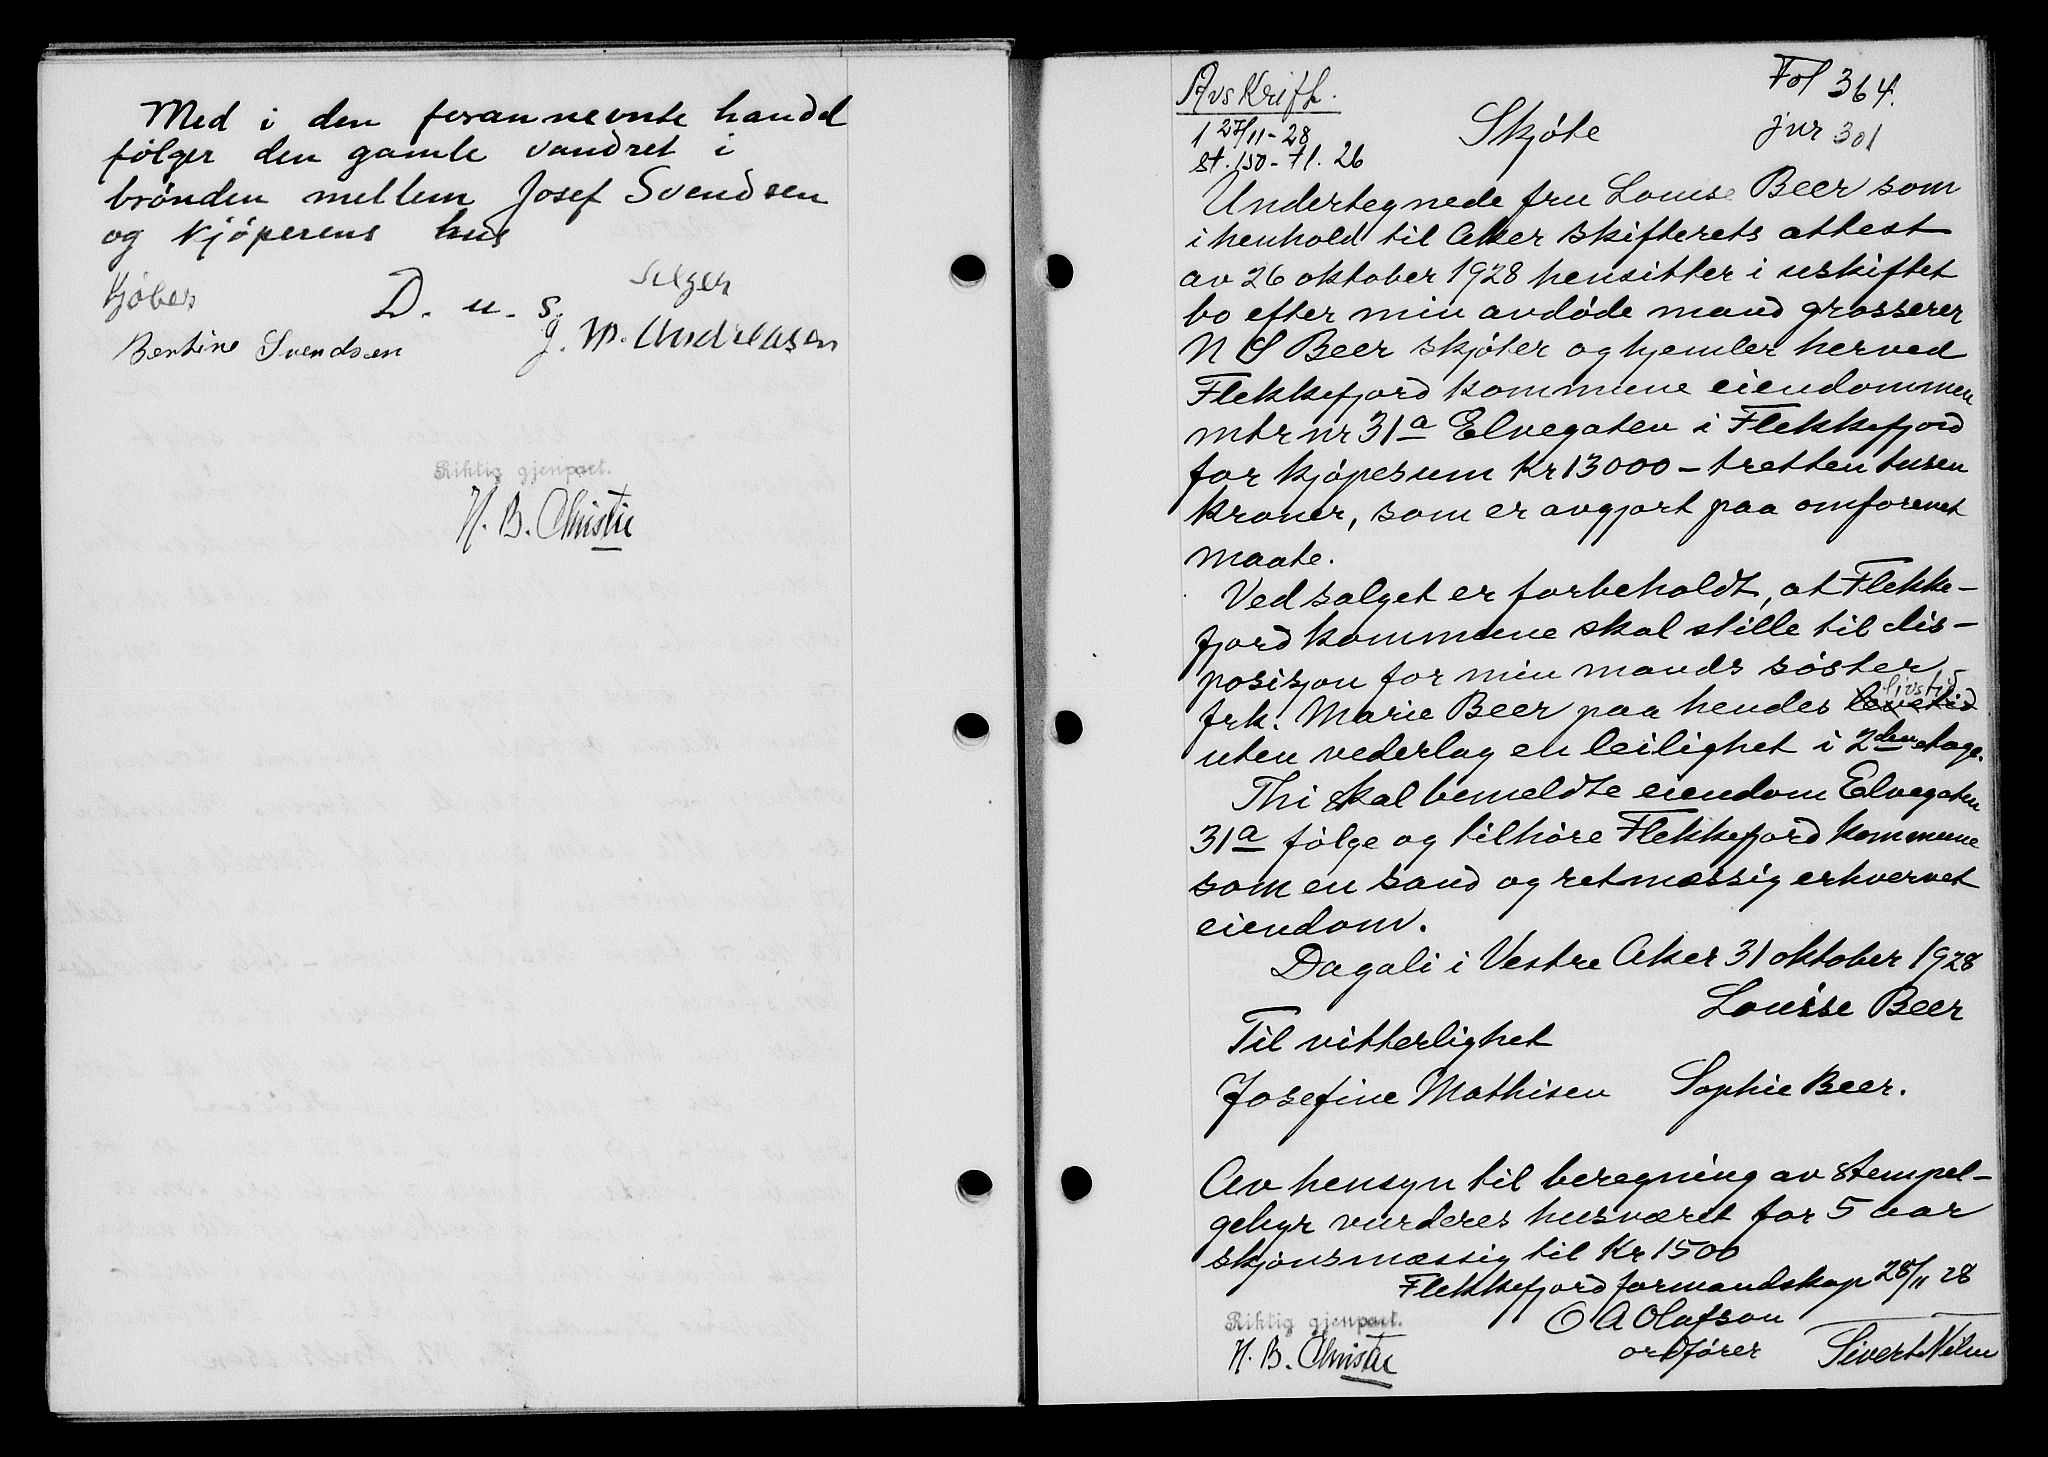 Med i den forannevnte handel
følger den gamle vandret i
brønden mellem Josef Svendsen
og kjøperens hus
Kjøber
Selger
D. u. s.
Bentine Svendsen
J. M. Andreasen
Riktig gjenpart.
H. B. Christie
Avskrift.
1 27/11-28
st. 150 - tl. 26
Skjøte
Fol 364.
jnr 301
Undertegnede fru Louise Beer som
i henhold til Aker skifterets attest
av 26 oktober 1928 hensitter i uskiftet
bo efter min avdøde mand grosserer
N S Beer skjøter og hjemler herved
Flekkefjord kommune eiendommen
mtr nr 31a Elvegaten i Flekkefjord
for kjøpesum Kr 13000 - tretten tusen
kroner, som er avgjort paa omforenet
maate.
Ved salget er forbeholdt, at Flekke-
fjord kommune skal stille til dis-
posisjon for min mands søster
livstid
frk. Marie Beer paa hendes levetid
uten vederlag en leilighet i 2den etage.
Thi skal bemeldte eiendom Elvegaten
31a følge og tilhøre Flekkefjord kommune
som en sand og retmæssig erhvervet
eiendom.
Dagali i Vestre Aker 31 oktober 1928
Louise Beer
Til vitterlighet
Josefine Mathisen Sophie Beer.
Av hensyn til beregning av stempel-
gebyr vurderes husværet for 5 aar
skjønsmæssig til Kr 1500
Flekkefjord formandskap 28/11 28
O A Olafson
ordfører
Sivert Nilsen
Riktig gjenpart.
H. B. Christie